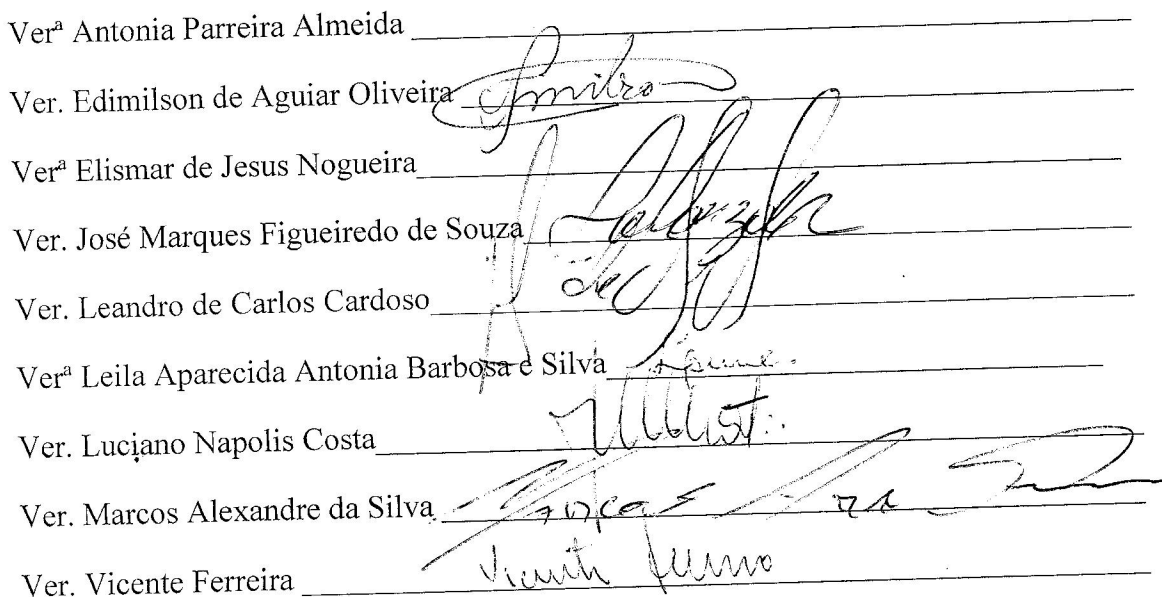 Verª Antonia Parreira Almeida
Ver. Edimilson de Aguiar Oliveira
Verª Elismar de Jesus Nogueira
Ver. José Marques Figueiredo de Souza
Ver. Leandro de Carlos Cardoso
Verª Leila Aparecida Antonia Barbosa e Silva
Ver. Luciano Napolis Costa
Ver. Marcos Alexandre da Silva
Ver. Vicente Ferreira Vicente